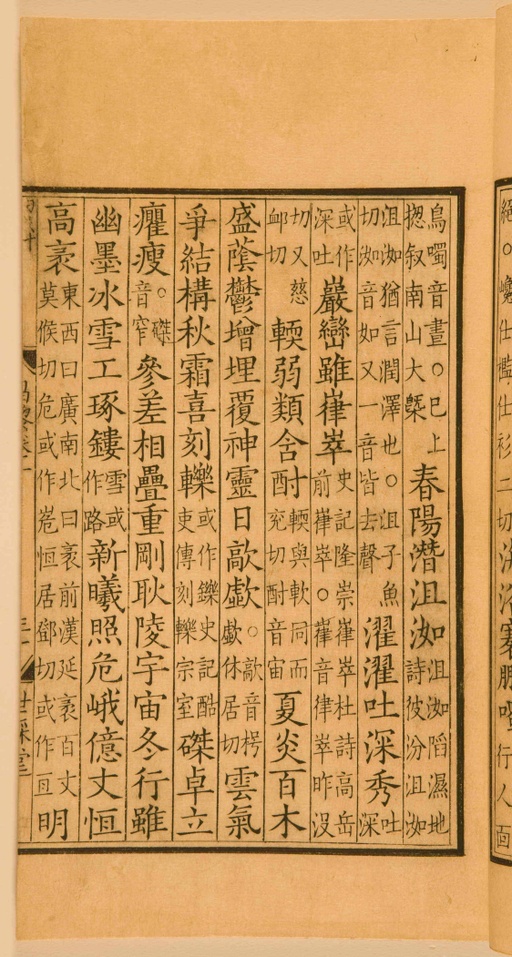 絕○巉仕檻仕衫二切
鳥噣音晝○巳上揔叙南山大槩春陽潛沮洳沮洳䧟濕地詩彼汾沮洳
沮洳猶言潤澤也○沮子魚切洳音如又一音皆去聲濯濯吐深秀吐深
或作深吐巖巒雖嵂崒史記隆崇嵂崒杜詩高岳前嵂崒○嵂音律崒昨沒
切又慈卹切輭弱類含酎輭與軟同而兖切酎音宙夏炎百木
盛蔭鬱增埋覆神靈日歊歔○歊音枵歔休居切雲氣
爭結構秋霜喜刻轢或作鑠史記酷吏傳刻轢宗室磔卓立
癯瘦○磔音窄參差相疊重剛耿陵宇宙冬行雖
幽墨冰雪工琢鏤雪或作路新曦照危峨億丈恒
高袤東西曰廣南北曰袤前漢延袤百丈莫候切危或作峞恒居鄧切或作亙明